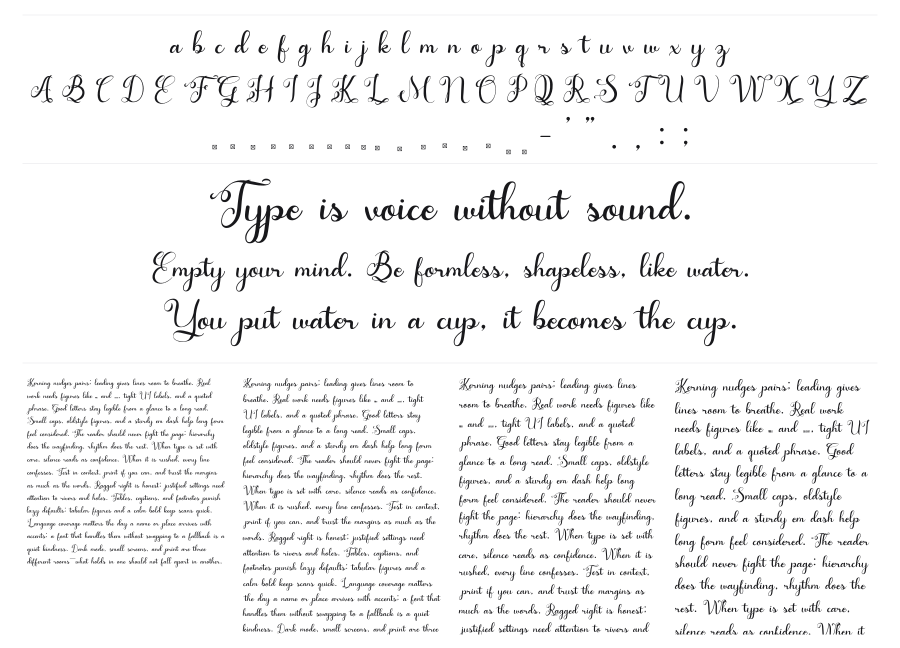 a b c d e f g h i j k l m n o p q r s t u v w x y z
A B C D E F G H I J K L M N O P Q R S T U V W X Y Z
- ' " . , : ;
Type is voice without sound.
Empty your mind. Be formless, shapeless, like water.
You put water in a cup, it becomes the cup.
Kerning nudges pairs; leading gives lines room to breathe. Real
work needs figures like and tight UI labels, and a quoted
phrase. Good letters stay legible from a glance to a long read.
Small caps, oldstyle figures, and a sturdy em dash help long form
feel considered. The reader should never fight the page: hierarchy
does the wayfinding, rhythm does the rest. When type is set with
care, silence reads as confidence. When it is rushed, every line
confesses. Test in context, print if you can, and trust the margins
as much as the words. Ragged right is honest; justified settings need
attention to rivers and holes. Tables, captions, and footnotes punish
lazy defaults; tabular figures and a calm bold keep scans quick.
Language coverage matters the day a name or place arrives with
accents; a font that handles them without swapping to a fallback is a
quiet kindness. Dark mode, small screens, and print are three
different rooms what holds in one should not fall apart in another.
Kerning nudges pairs; leading gives lines room to
breathe. Real work needs figures like and tight
UI labels, and a quoted phrase. Good letters stay
legible from a glance to a long read. Small caps,
oldstyle figures, and a sturdy em dash help long form
feel considered. The reader should never fight the page:
hierarchy does the wayfinding, rhythm does the rest.
When type is set with care, silence reads as confidence.
When it is rushed, every line confesses. Test in context,
print if you can, and trust the margins as much as the
words. Ragged right is honest; justified settings need
attention to rivers and holes. Tables, captions, and
footnotes punish lazy defaults; tabular figures and a
calm bold keep scans quick. Language coverage matters
the day a name or place arrives with accents; a font that
handles them without swapping to a fallback is a quiet
kindness. Dark mode, small screens, and print are three
Kerning nudges pairs; leading gives lines
room to breathe. Real work needs figures like
and tight UI labels, and a quoted
phrase. Good letters stay legible from a
glance to a long read. Small caps, oldstyle
figures, and a sturdy em dash help long
form feel considered. The reader should never
fight the page: hierarchy does the wayfinding,
rhythm does the rest. When type is set with
care, silence reads as confidence. When it is
rushed, every line confesses. Test in context,
print if you can, and trust the margins as
much as the words. Ragged right is honest;
justified settings need attention to rivers and
Kerning nudges pairs; leading gives
lines room to breathe. Real work
needs figures like and tight UI
labels, and a quoted phrase. Good
letters stay legible from a glance to a
long read. Small caps, oldstyle
figures, and a sturdy em dash help
long form feel considered. The reader
should never fight the page: hierarchy
does the wayfinding, rhythm does the
rest. When type is set with care,
silence reads as confidence. When it